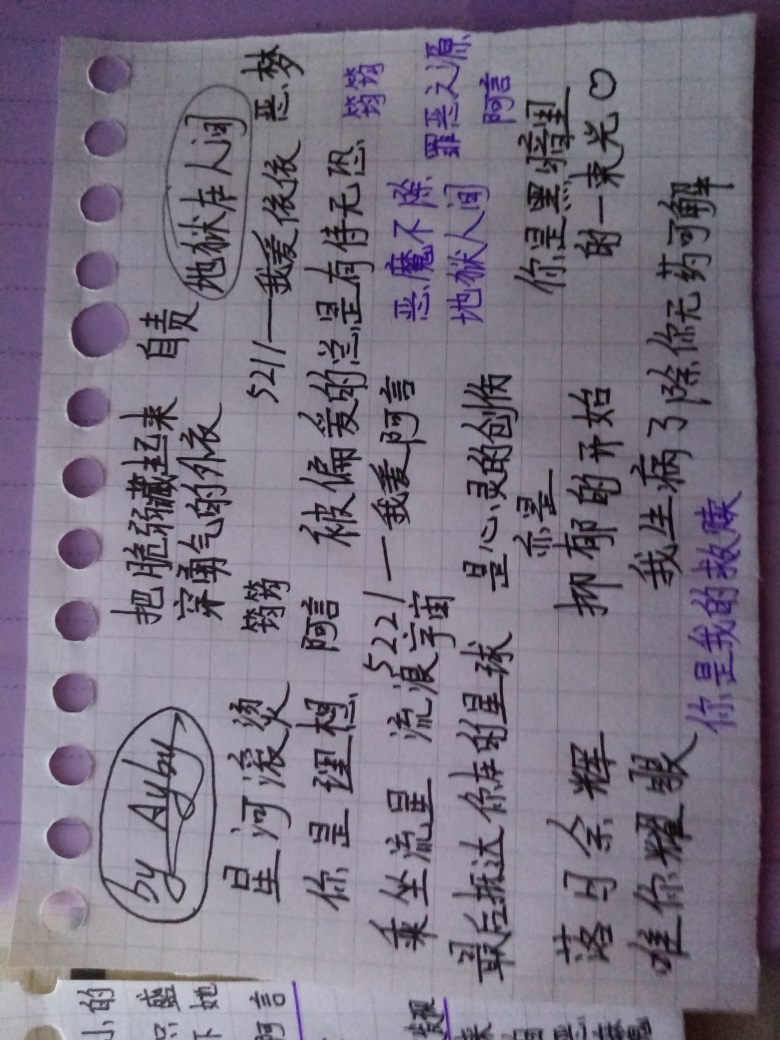 by Ayby
把脆弱藏起来
穿勇气的外衣
自责
地狱在人间
星河滚烫
你是理想
筠筠
阿言
5211—我爱依依
恶梦
被偏爱的总是有恃无恐
筠筠
乘坐流星 流浪宇宙
最后抵达你在的星球
5221—我爱阿言
恶魔不除
地狱人间
罪恶之源
阿言
是心灵的创伤
亦是
抑郁的开始
你是黑暗里
的一束光♡
落日余辉
唯你耀眼
我生病了除你无药可解
你是我的救赎
小的
盛
下她
阿言